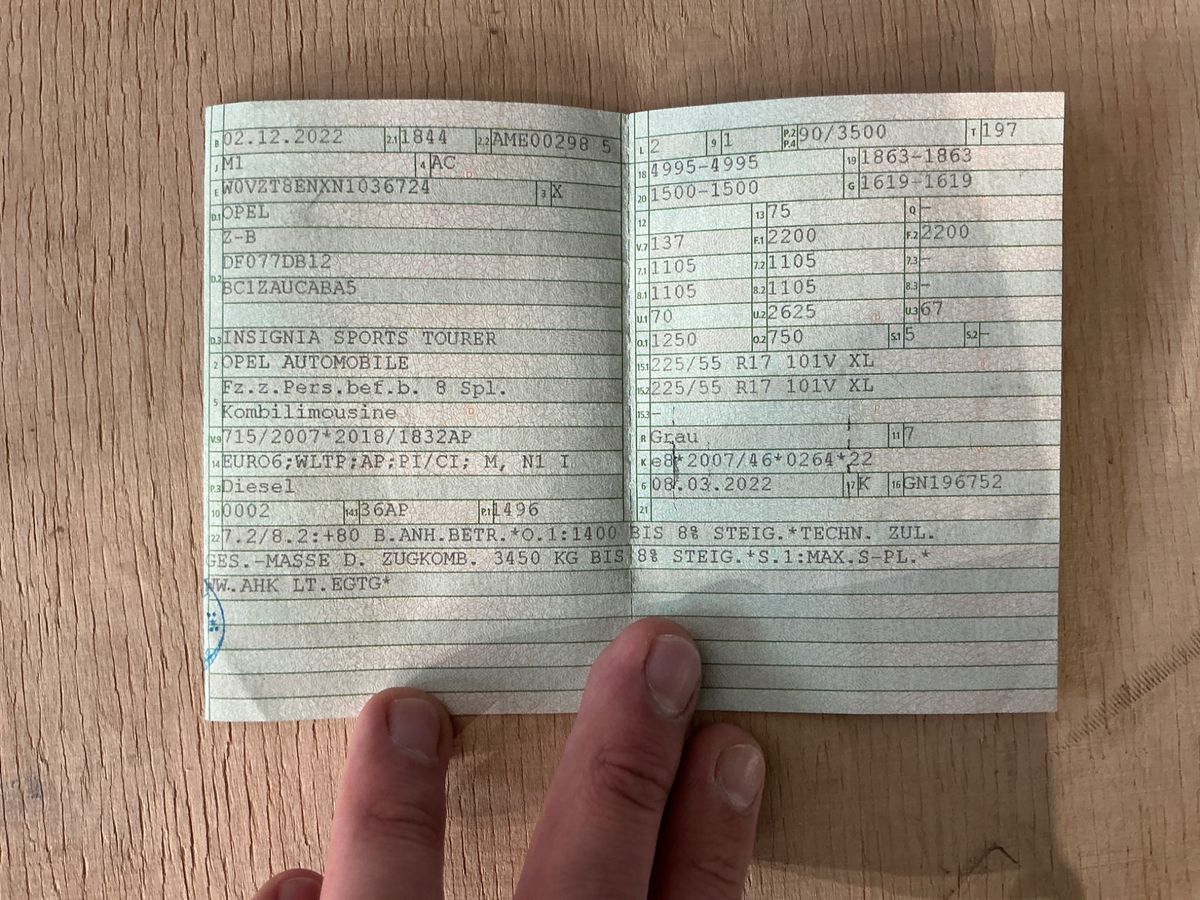 B 02.12.2022 2.1 1844 2.2 AME00298 5
J M1 4 AC
E W0VZT8ENXN1036724 3 X
D.1 OPEL
Z-B
DF077DB12
D.2 BC1ZAUCABA5
D.3 INSIGNIA SPORTS TOURER
2 OPEL AUTOMOBILE
Fz.z.Pers.bef.b. 8 Spl.
5 Kombilimousine
V.9 715/2007*2018/1832AP
14 EURO6;WLTP;AP;PI/CI; M, N1 I
P.3 Diesel
10 0002 14.1 36AP P.1 1496
L 2 9 1 P.2 P.4 90/3500 T 197
18 4995-4995 19 1863-1863
20 1500-1500 G 1619-1619
12 13 75 Q -
V.7 137 F.1 2200 F.2 2200
7.1 1105 7.2 1105 7.3 -
8.1 1105 8.2 1105 8.3 -
U.1 70 U.2 2625 U.3 67
O.1 1250 O.2 750 S.1 5 S.2 -
15.1 225/55 R17 101V XL
15.2 225/55 R17 101V XL
15.3 -
R Grau 11 7
K e8*2007/46*0264*22
6 08.03.2022 17 K 16 GN196752
21
22 7.2/8.2:+80 B.ANH.BETR.*O.1:1400 BIS 8% STEIG.*TECHN. ZUL.
GES.-MASSE D. ZUGKOMB. 3450 KG BIS 8% STEIG.*S.1:MAX.S-PL.*
WW.AHK LT.EGTG*